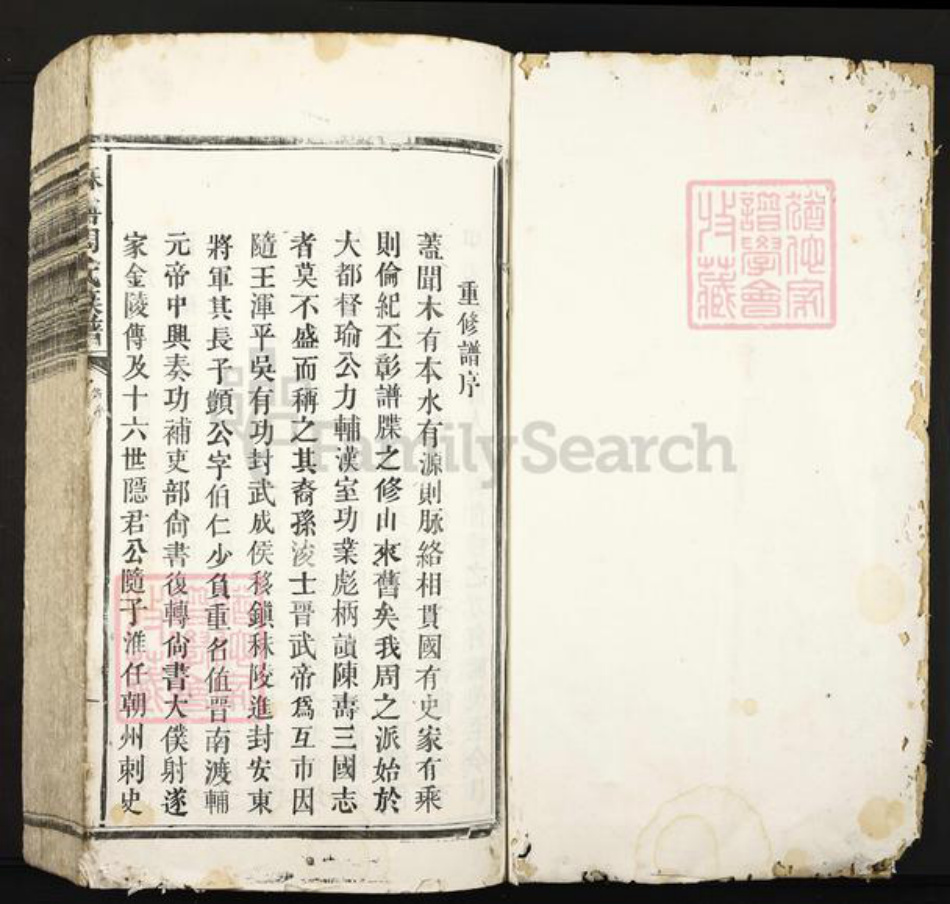 重修譜序
蓋聞木有本水有源則脉絡相貫國有史家有乘
則倫紀丕彰譜牒之修由來舊矣我周之派始於
大都督瑜公力輔漢室功業彪柄讀陳壽三國志
者莫不盛而稱之其裔孫浚士晉武帝爲互市因
隨王渾平吳有功封武成侯移鎭秣陵進封安東
將軍其長子顗公字伯仁少負重名値晉南渡輔
元帝中興奏功補吏部尙書復轉尙書大僕射遂
家金陵傳及十六世隱君公隨子淮任朝州刺史
周氏族譜
譜學會
收藏
FamilySearch